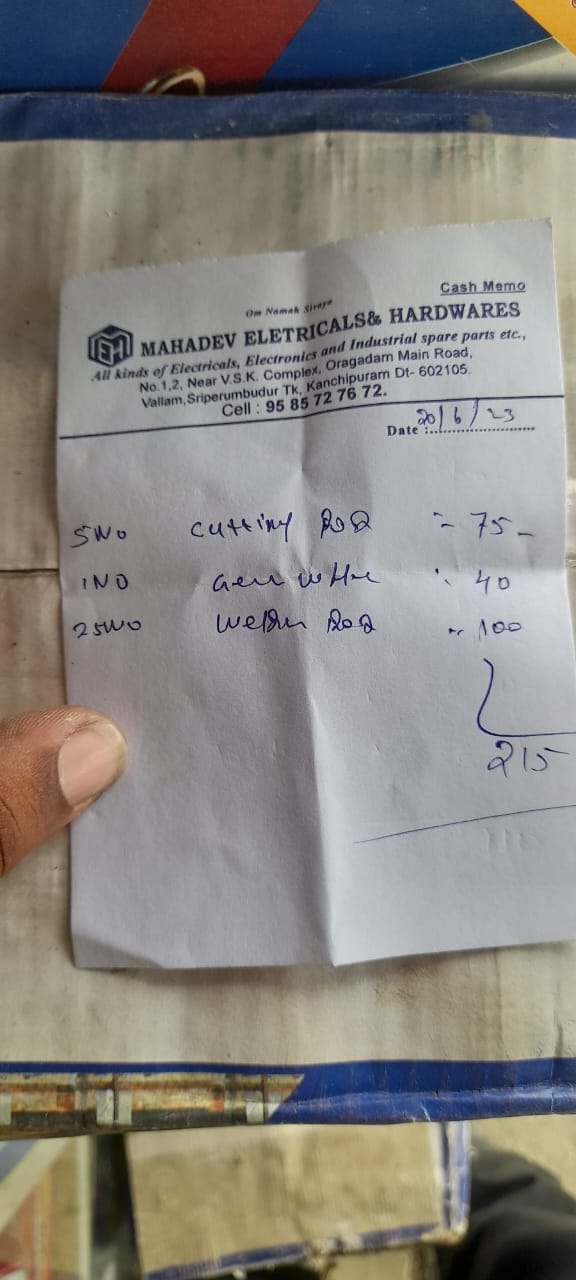 Cash Memo
Om Namah Sivaya
EH MAHADEV ELETRICALS& HARDWARES
All kinds of Electricals, Electronics and Industrial spare parts etc.,
No.1,2, Near V.S.K. Complex, Oragadam Main Road,
Vallam,Sriperumbudur Tk, Kanchipuram Dt- 602105.
Cell : 95 85 72 76 72.
Date : 20/6/23
5NO cutting - 75 -
1NO 40
25NO 100
215